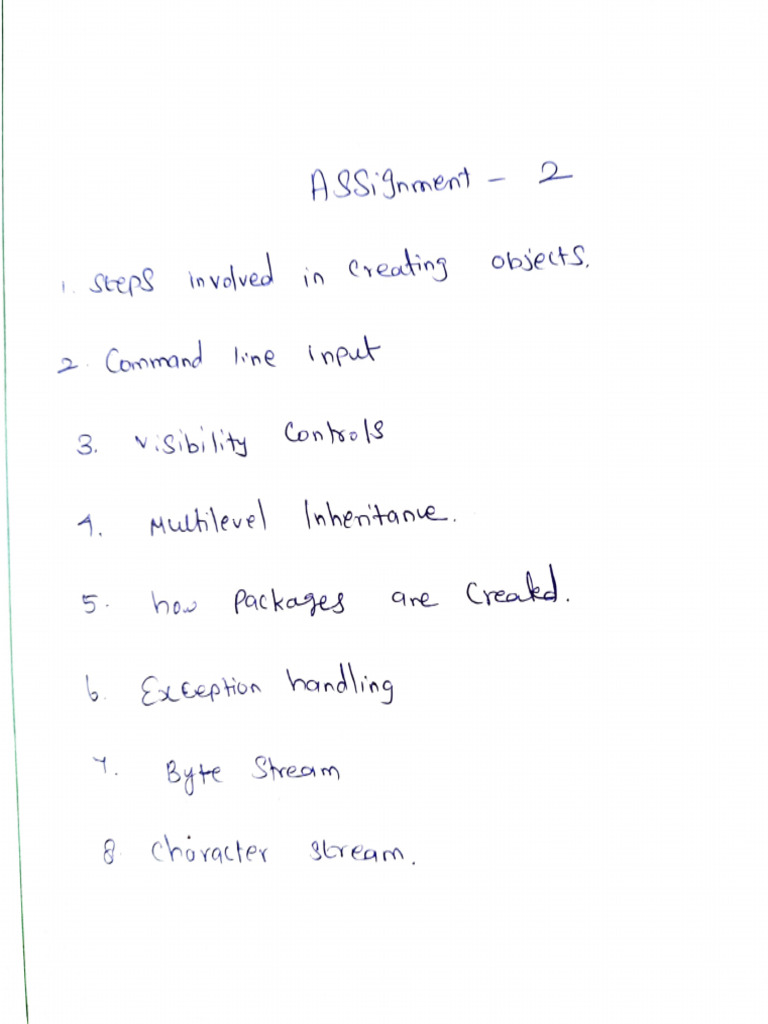 Assignment - 2
1. Steps involved in creating objects.
2. Command line input
3. Visibility Controls
4. Multilevel Inheritance.
5. how packages are Created.
6. Exception handling
7. Byte Stream
8. Character stream.